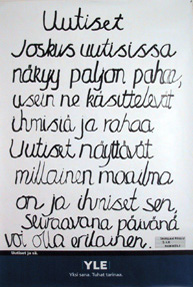 Uutiset
Joskus uutisissa
näkyy paljon pahaa,
usein ne käsittelevät
ihmisiä ja rahaa
Uutiset näyttävät
millainen maailma
on ja ihmiset sen,
seuraavana päivänä
voi olla erilainen.
Uutiset ja sä.
YLE
Yksi sana. Tuhat tarinaa.